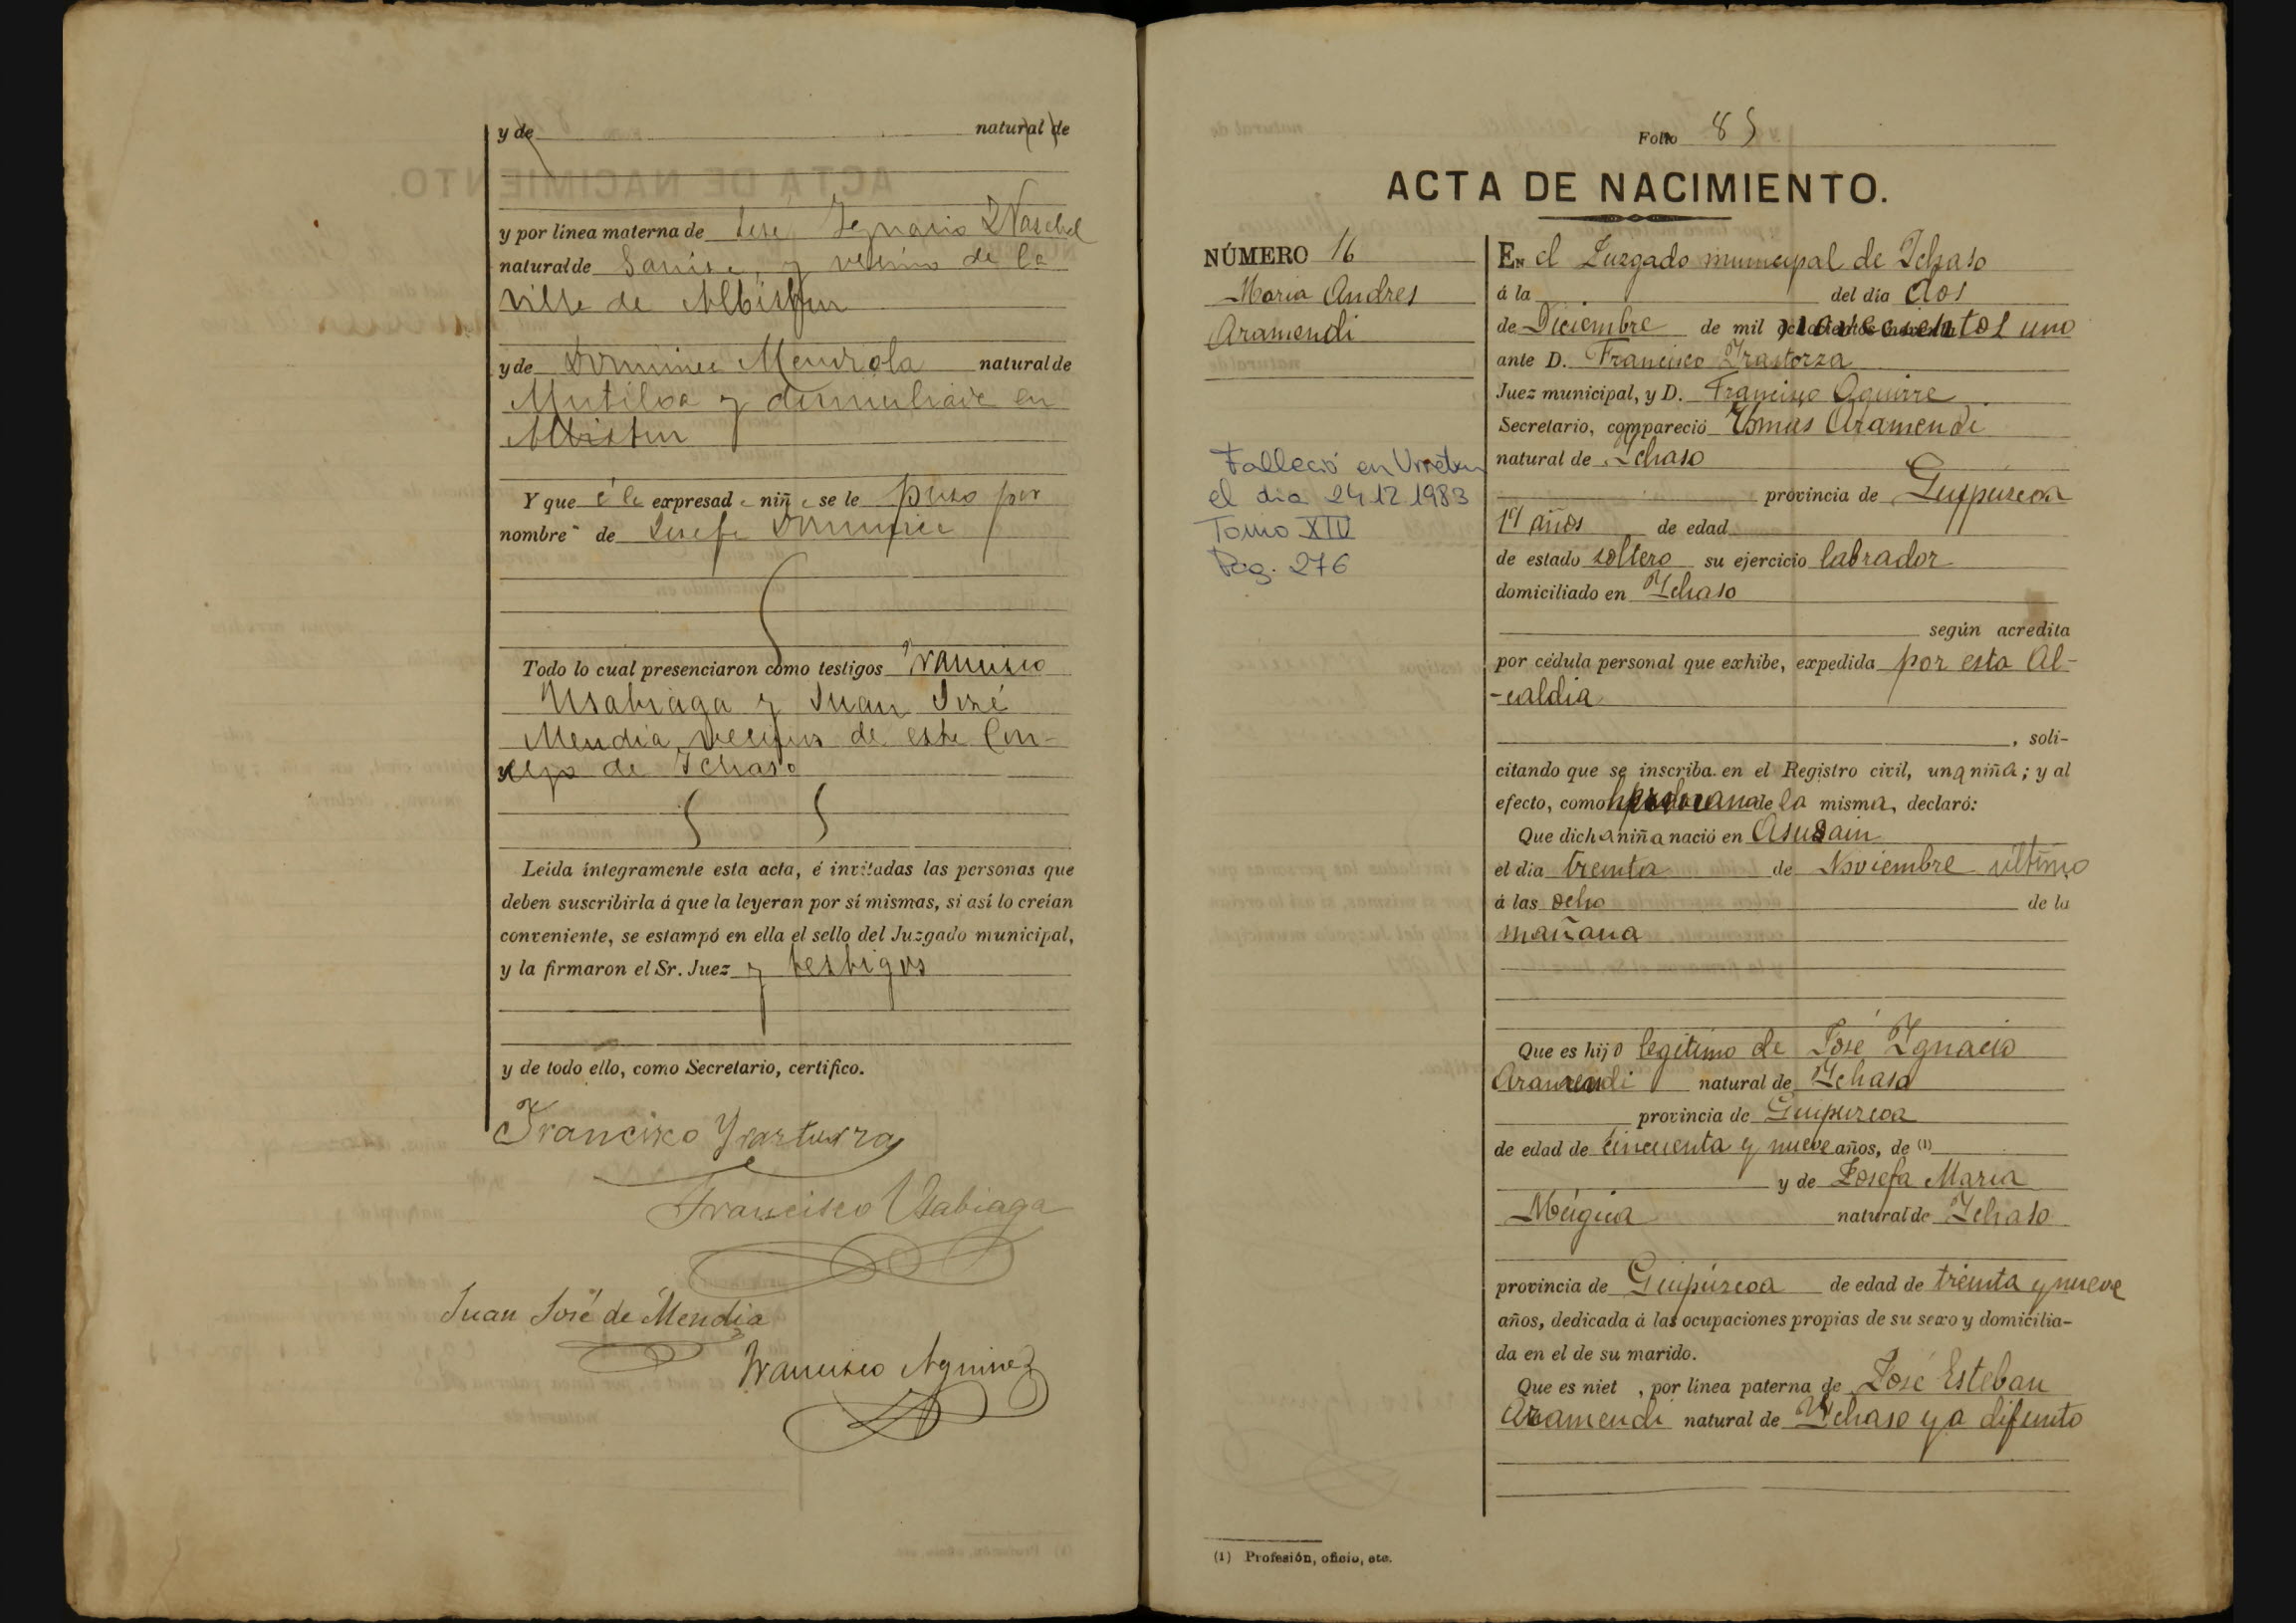 y de natural de
y por línea materna de José Ignacio
natural de y vecino de la
villa de Albistur
y de Dominica Mendiola natural de
Mutiloa y domiciliada en
Albistur
Y que á la expresada niña se le puso por
nombre de Josefa Dominica
Todo lo cual presenciaron como testigos Francisco
Usabiaga y Juan José
Mendia, vecinos de este Con-
cejo de Ichaso
Leida íntegramente esta acta, é invitadas las personas que
deben suscribirla á que la leyeran por sí mismas, si así lo creían
conveniente, se estampó en ella el sello del Juzgado municipal,
y la firmaron el Sr. Juez y testigos
y de todo ello, como Secretario, certifico.
Francisco
Francisco Usabiaga
Juan José de Mendia
Francisco Aguirre
Folio 85
ACTA DE NACIMIENTO.
NÚMERO 16
Maria Andres
Aramendi
Falleció en Urretxu
el dia 24 12 1983
Tomo XIV
Pag. 276
En el Juzgado municipal de Ichaso
á la del día dos
de Diciembre de mil novecientos uno
ante D. Francisco Irastorza
Juez municipal, y D. Francisco Aguirre
Secretario, compareció Tomas Aramendi
natural de Ichaso
provincia de Guipúzcoa
19 años de edad
de estado soltero su ejercicio labrador
domiciliado en Ichaso
según acredita
por cédula personal que exhibe, expedida por esta Al-
-caldia
, soli-
citando que se inscriba en el Registro civil, una niña; y al
efecto, como de la misma, declaró:
Que dicha niña nació en Asusain
el dia treinta de Noviembre último
á las ocho de la
mañana
Que es hijo legitimo de José Ignacio
Aramendi natural de Ichaso
provincia de Guipuzcoa
de edad de cincuenta y nueve años, de (1)
y de Josefa Maria
Múgica natural de Ichaso
provincia de Guipúzcoa de edad de treinta y nueve
años, dedicada á las ocupaciones propias de su sexo y domicilia-
da en el de su marido.
Que es niet , por línea paterna de José Esteban
Aramendi natural de Ichaso ya difunto
(1) Profesión, oficio, etc.